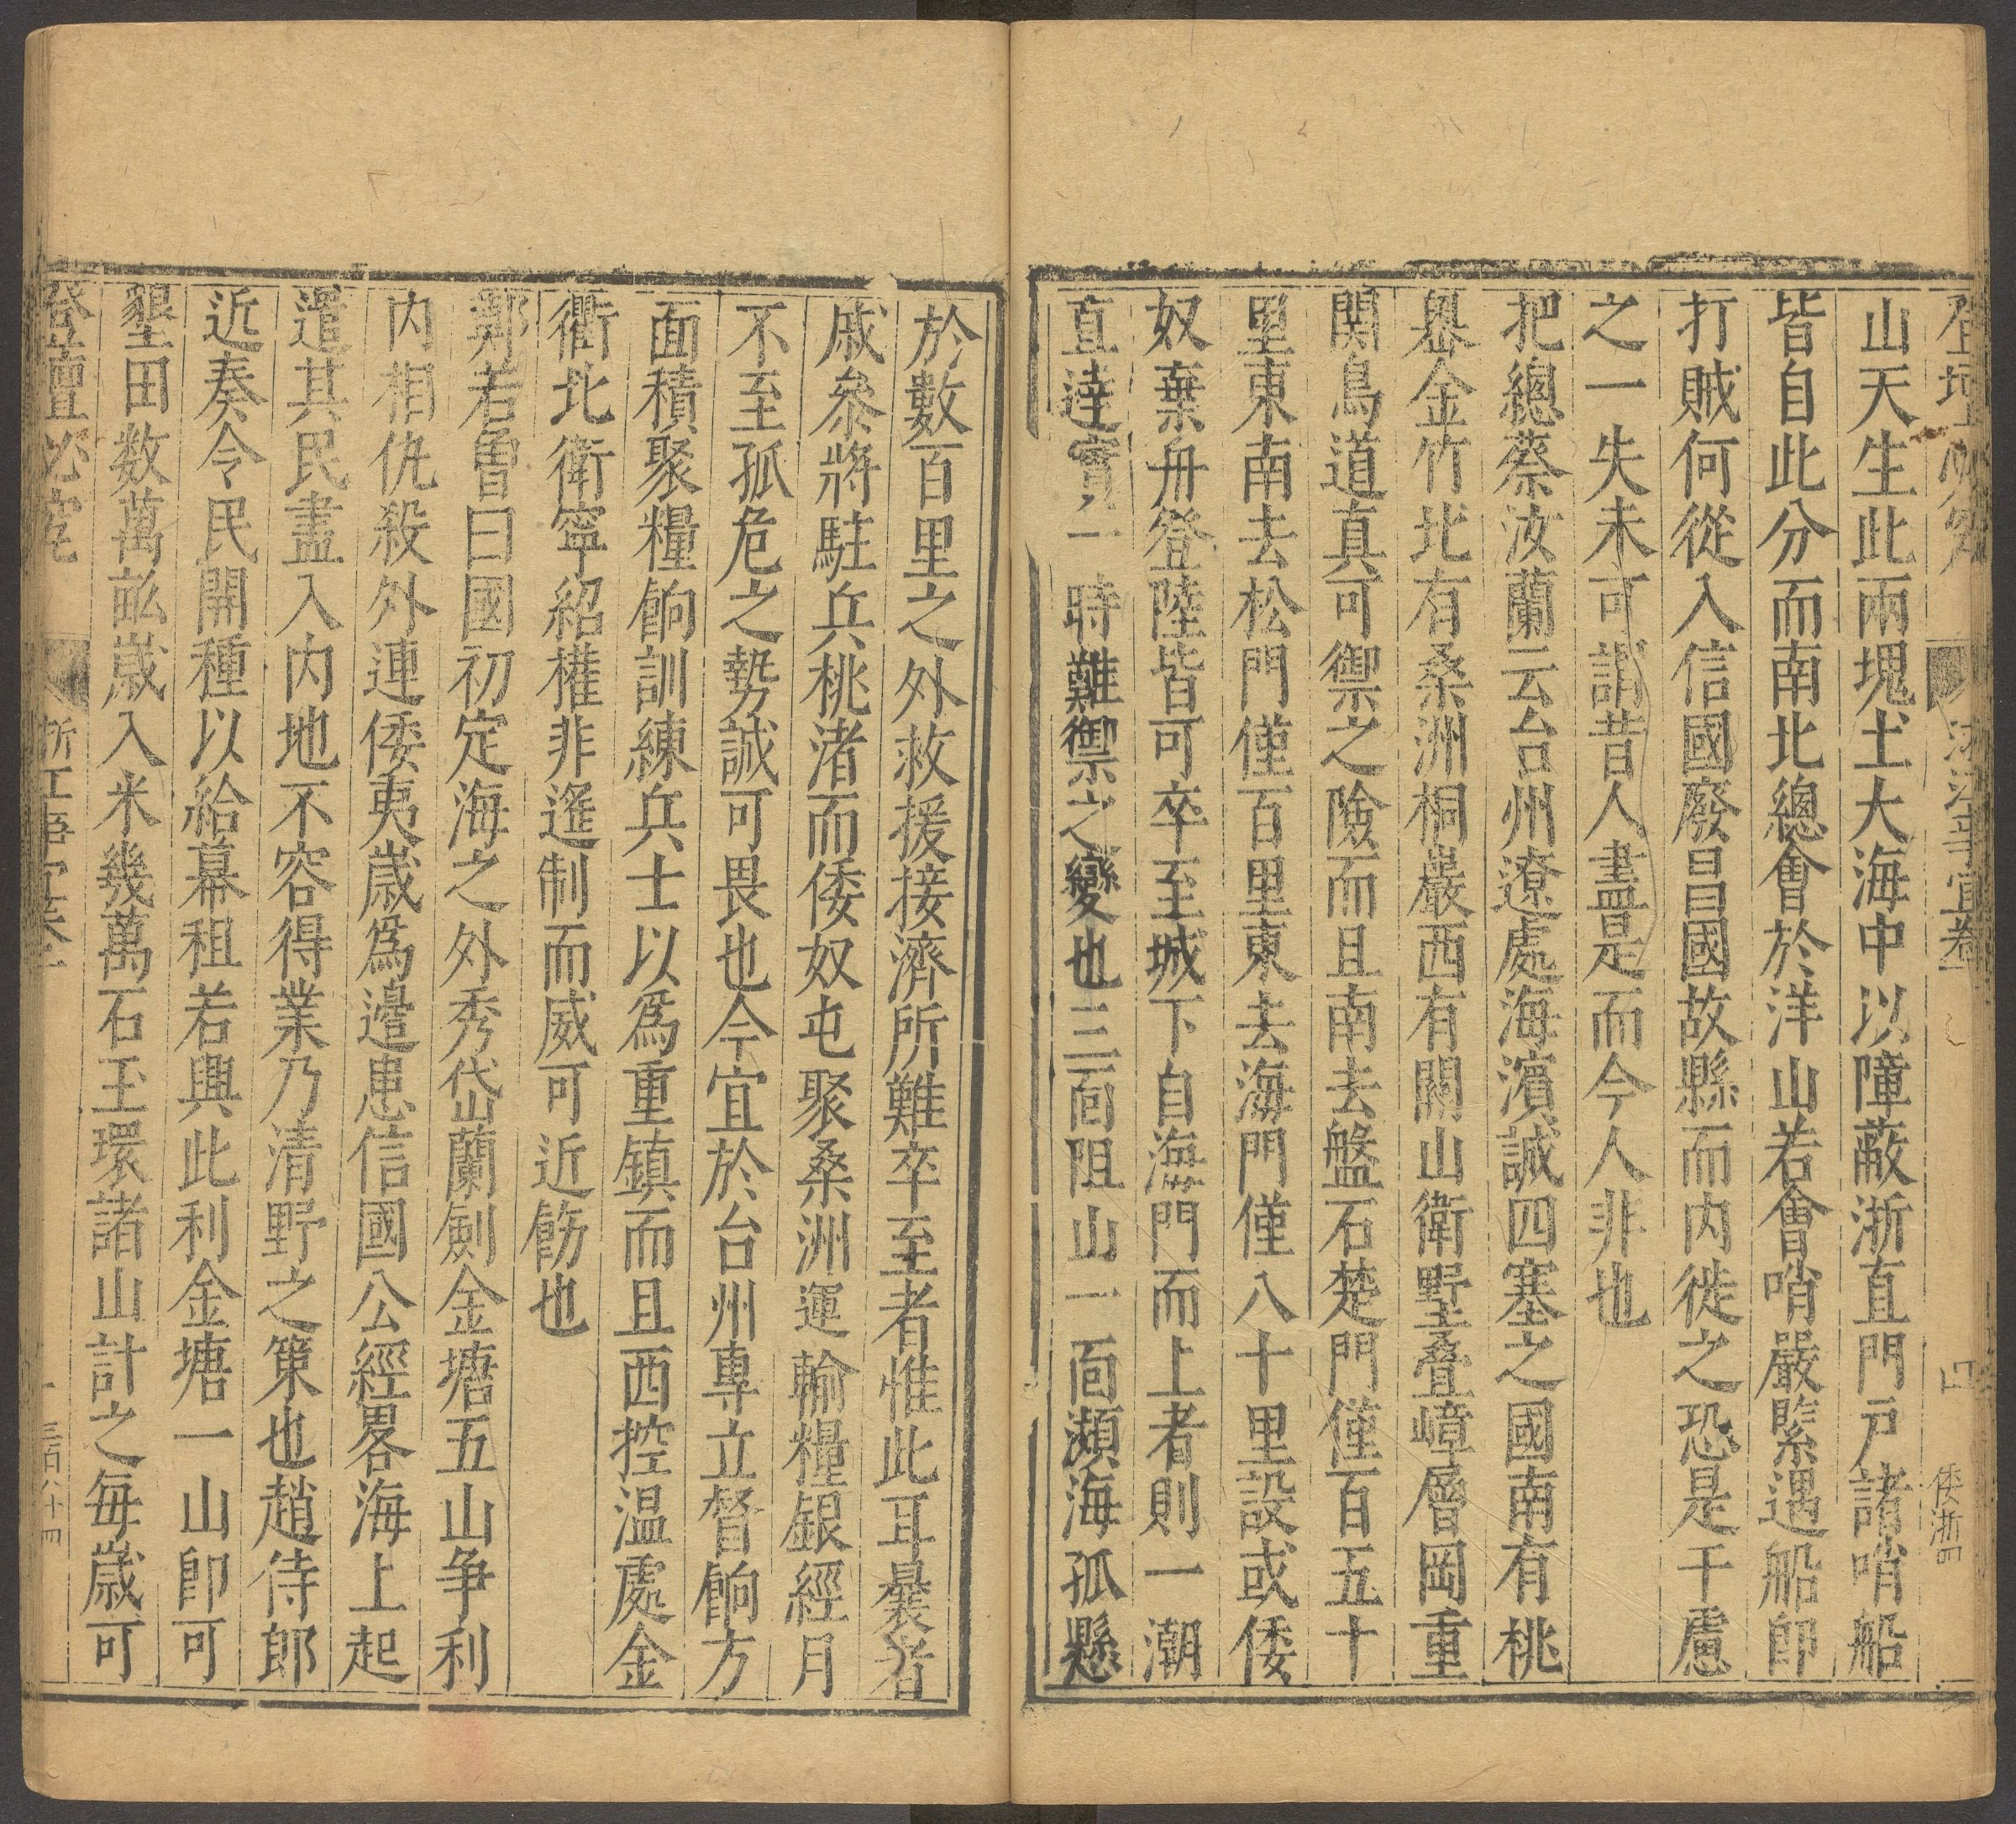 山天生此兩塊土大海中以障蔽浙直門戸諸哨船
皆自此分而南北總會於洋山若會哨嚴緊遇船卽
打賊何從入信國廢昌國故縣而内徙之恐是千慮
之一失未可謂昔人盡是而今人非也
把總蔡汝蘭云台州遼處海濱誠四塞之國南有桃
㮣金竹北有桑洲桐巖西有關山衛墅叠嶂層岡重
関鳥道真可禦之險而且南去盤石楚門僅百五十
里東南去松門僅百里東去海門僅八十里設或倭
奴棄舟登陸皆可卒至城下自海門而上者則一潮
直達實一時難禦之變也三面阻山一面瀕海孤懸
於數百里之外救援接濟所難卒至者惟此耳曩者
戚叅將駐兵桃渚而倭奴屯聚桑洲運輸糧銀經月
不至孤危之勢誠可畏也今宜於台州專立督餉方
面積聚糧餉訓練兵士以爲重鎮而且西控温處金
衢北衛寧紹權非遙制而威可近飭也
鄭若曾曰國初定海之外秀岱山蘭劍金塘五山争利
内相仇殺外連倭夷歲爲邊患信國公經畧海上起
遣其民盡入内地不容得業乃清野之策也趙侍郎
近奏令民開種以給幕租若興此利金塘一山卽可
墾田数萬畝歲入米幾萬石玉環諸山計之每歲可
登壇必究
浙江事宜卷
三百八十四